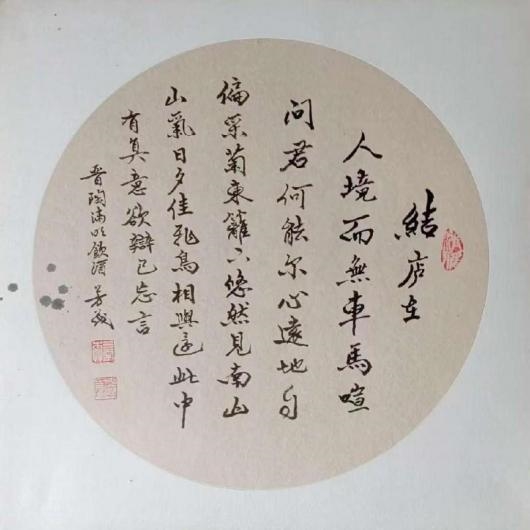 結庐在
人境而無車馬喧
问君何能尔心遠地自
偏采菊東籬下悠然見南山
山氣日夕佳飛鳥相與還此中
有真意欲辯已忘言
晋陶渊明饮酒